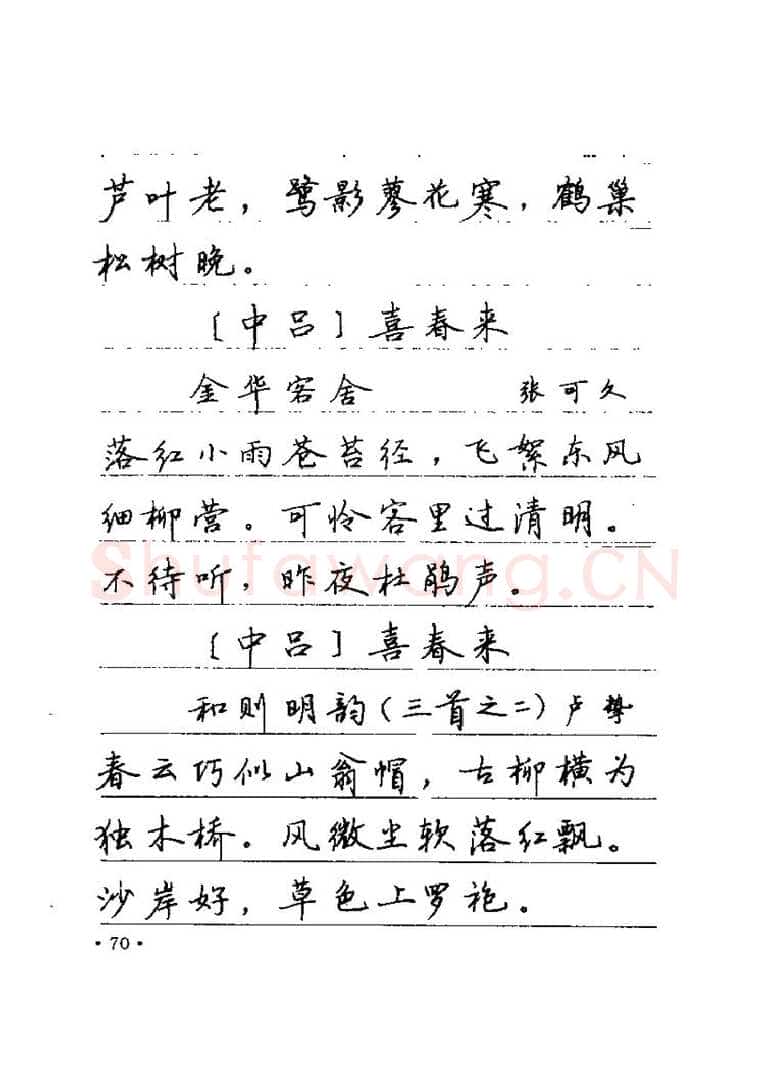 芦叶老，鹭影蓼花寒，鹤巢
松树晚。
〔中吕〕喜春来
金华客舍 张可久
落红小雨苍苔径，飞絮东风
细柳营。可怜客里过清明。
不待听，昨夜杜鹃声。
〔中吕〕喜春来
和则明韵(三首之二)卢挚
春云巧似山翁帽，古柳横为
独木桥。风微尘软落红飘。
沙岸好，草色上罗袍。
·70·
Shufawang.CN